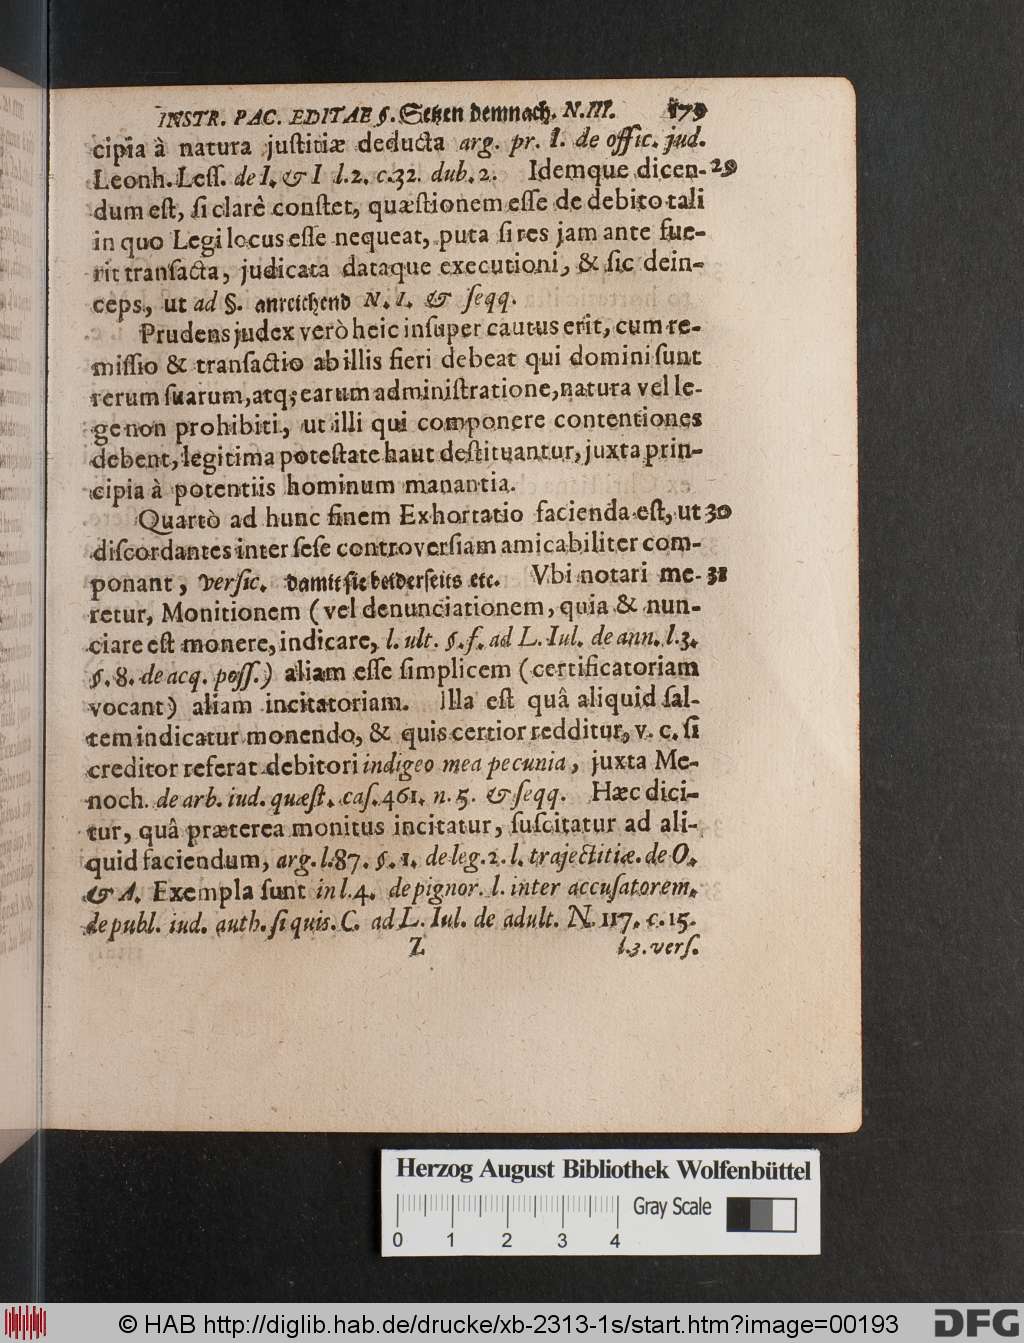 INSTR. PAC. EDITAE §. Setzen demnach. N. III. 179
cipia à natura juſtitiæ deducta arg. pr. I. de offic. jud.
Leonh. Leſſ. de I. & I l.2. c.32. dub. 2. Idemque dicen- 29
dum eſt, ſi clarè conſtet, quæſtionem eſſe de debito tali
in quo Legi locus eſſe nequeat, puta ſi res jam ante fue-
rit tranſacta, judicata dataque executioni, & ſic dein-
ceps, ut ad §. anreichend N. I. & ſeqq.
Prudens judex verò heic inſuper cautus erit, cum re-
miſſio & tranſactio ab illis fieri debeat qui domini ſunt
rerum ſuarum, atq; earum adminiſtratione, natura vel le-
ge non prohibiti, ut illi qui componere contentiones
debent, legitima poteſtate haut deſtituantur, juxta prin-
cipia à potentiis hominum manantia.
Quartò ad hunc finem Exhortatio facienda eſt, ut 30
diſcordantes inter ſeſe controverſiam amicabiliter com-
ponant, verſic. damit ſie beiderſeits etc. Vbi notari me- 31
retur, Monitionem (vel denunciationem, quia & nun-
ciare eſt monere, indicare, l. ult. §. f. ad L. Iul. de ann. l.3.
§. 8. de acq. poſſ.) aliam eſſe ſimplicem (certificatoriam
vocant) aliam incitatoriam. Illa eſt quâ aliquid ſal-
tem indicatur monendo, & quis certior redditur, v. c. ſi
creditor referat debitori indigeo mea pecunia, juxta Me-
noch. de arb. iud. quæſt. caſ. 461. n. 5. & ſeqq. Hæc dici-
tur, quâ præterea monitus incitatur, ſuſcitatur ad ali-
quid faciendum, arg. l.87. §. 1. de leg. 2. l. trajectitiæ. de O.
& A. Exempla ſunt in l.4. de pignor. l. inter accuſatorem.
de publ. iud. auth. ſi quis. C. ad L. Iul. de adult. N. 117. c. 15.
Z l.3. verſ.
Herzog August Bibliothek Wolfenbüttel
Gray Scale
0 1 2 3 4
© HAB http://diglib.hab.de/drucke/xb-2313-1s/start.htm?image=00193
DFG